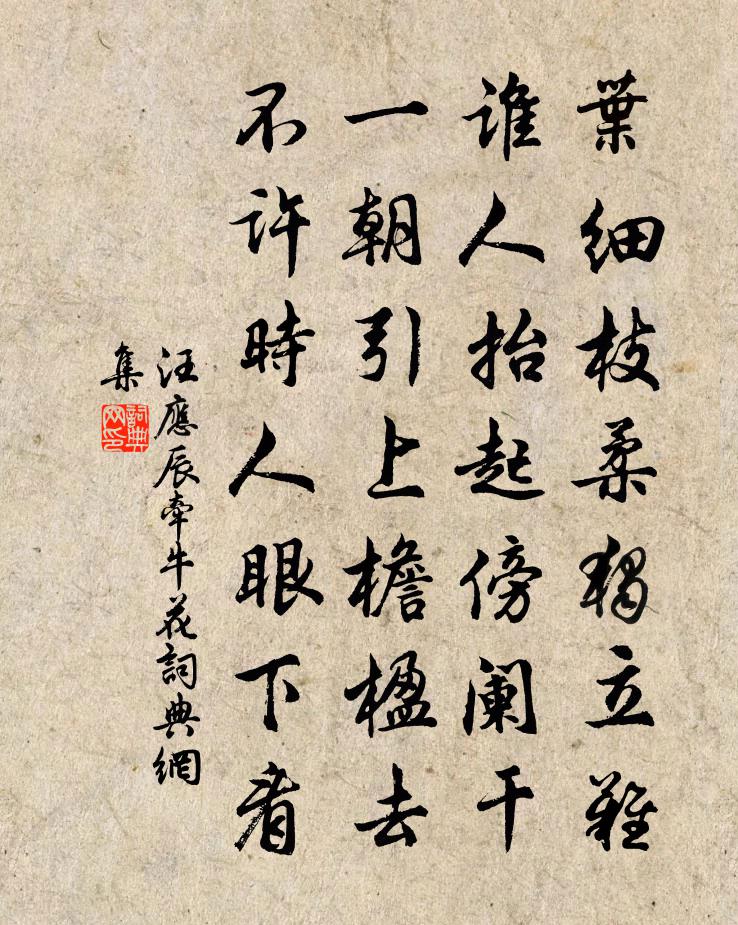 葉細枝柔獨立難
誰人抬起傍闌干
一朝引上檐楹去
不許時人眼下看
汪應辰牽牛花詞典網
集
詞典网印